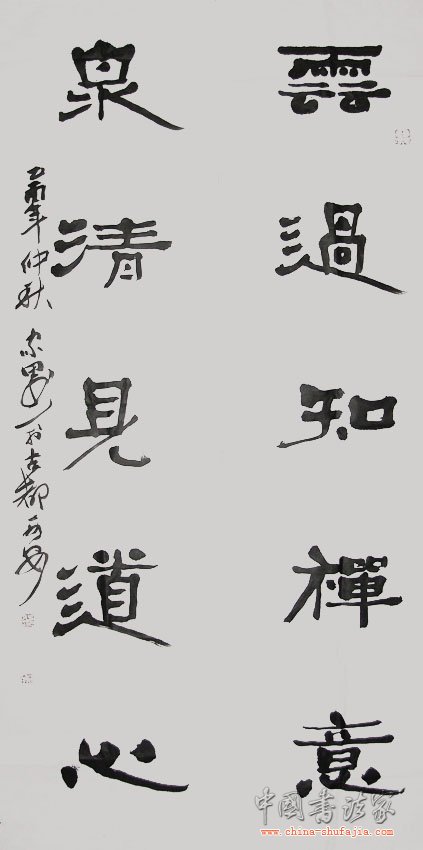 雲過知禪意
泉清見道心
年仲秋
於古都西安
中國書法家
www.china-shufajia.com